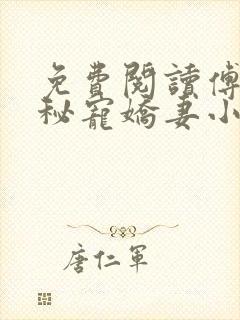 免費閱讀傅
秘寵嬌妻小
唐仁軍